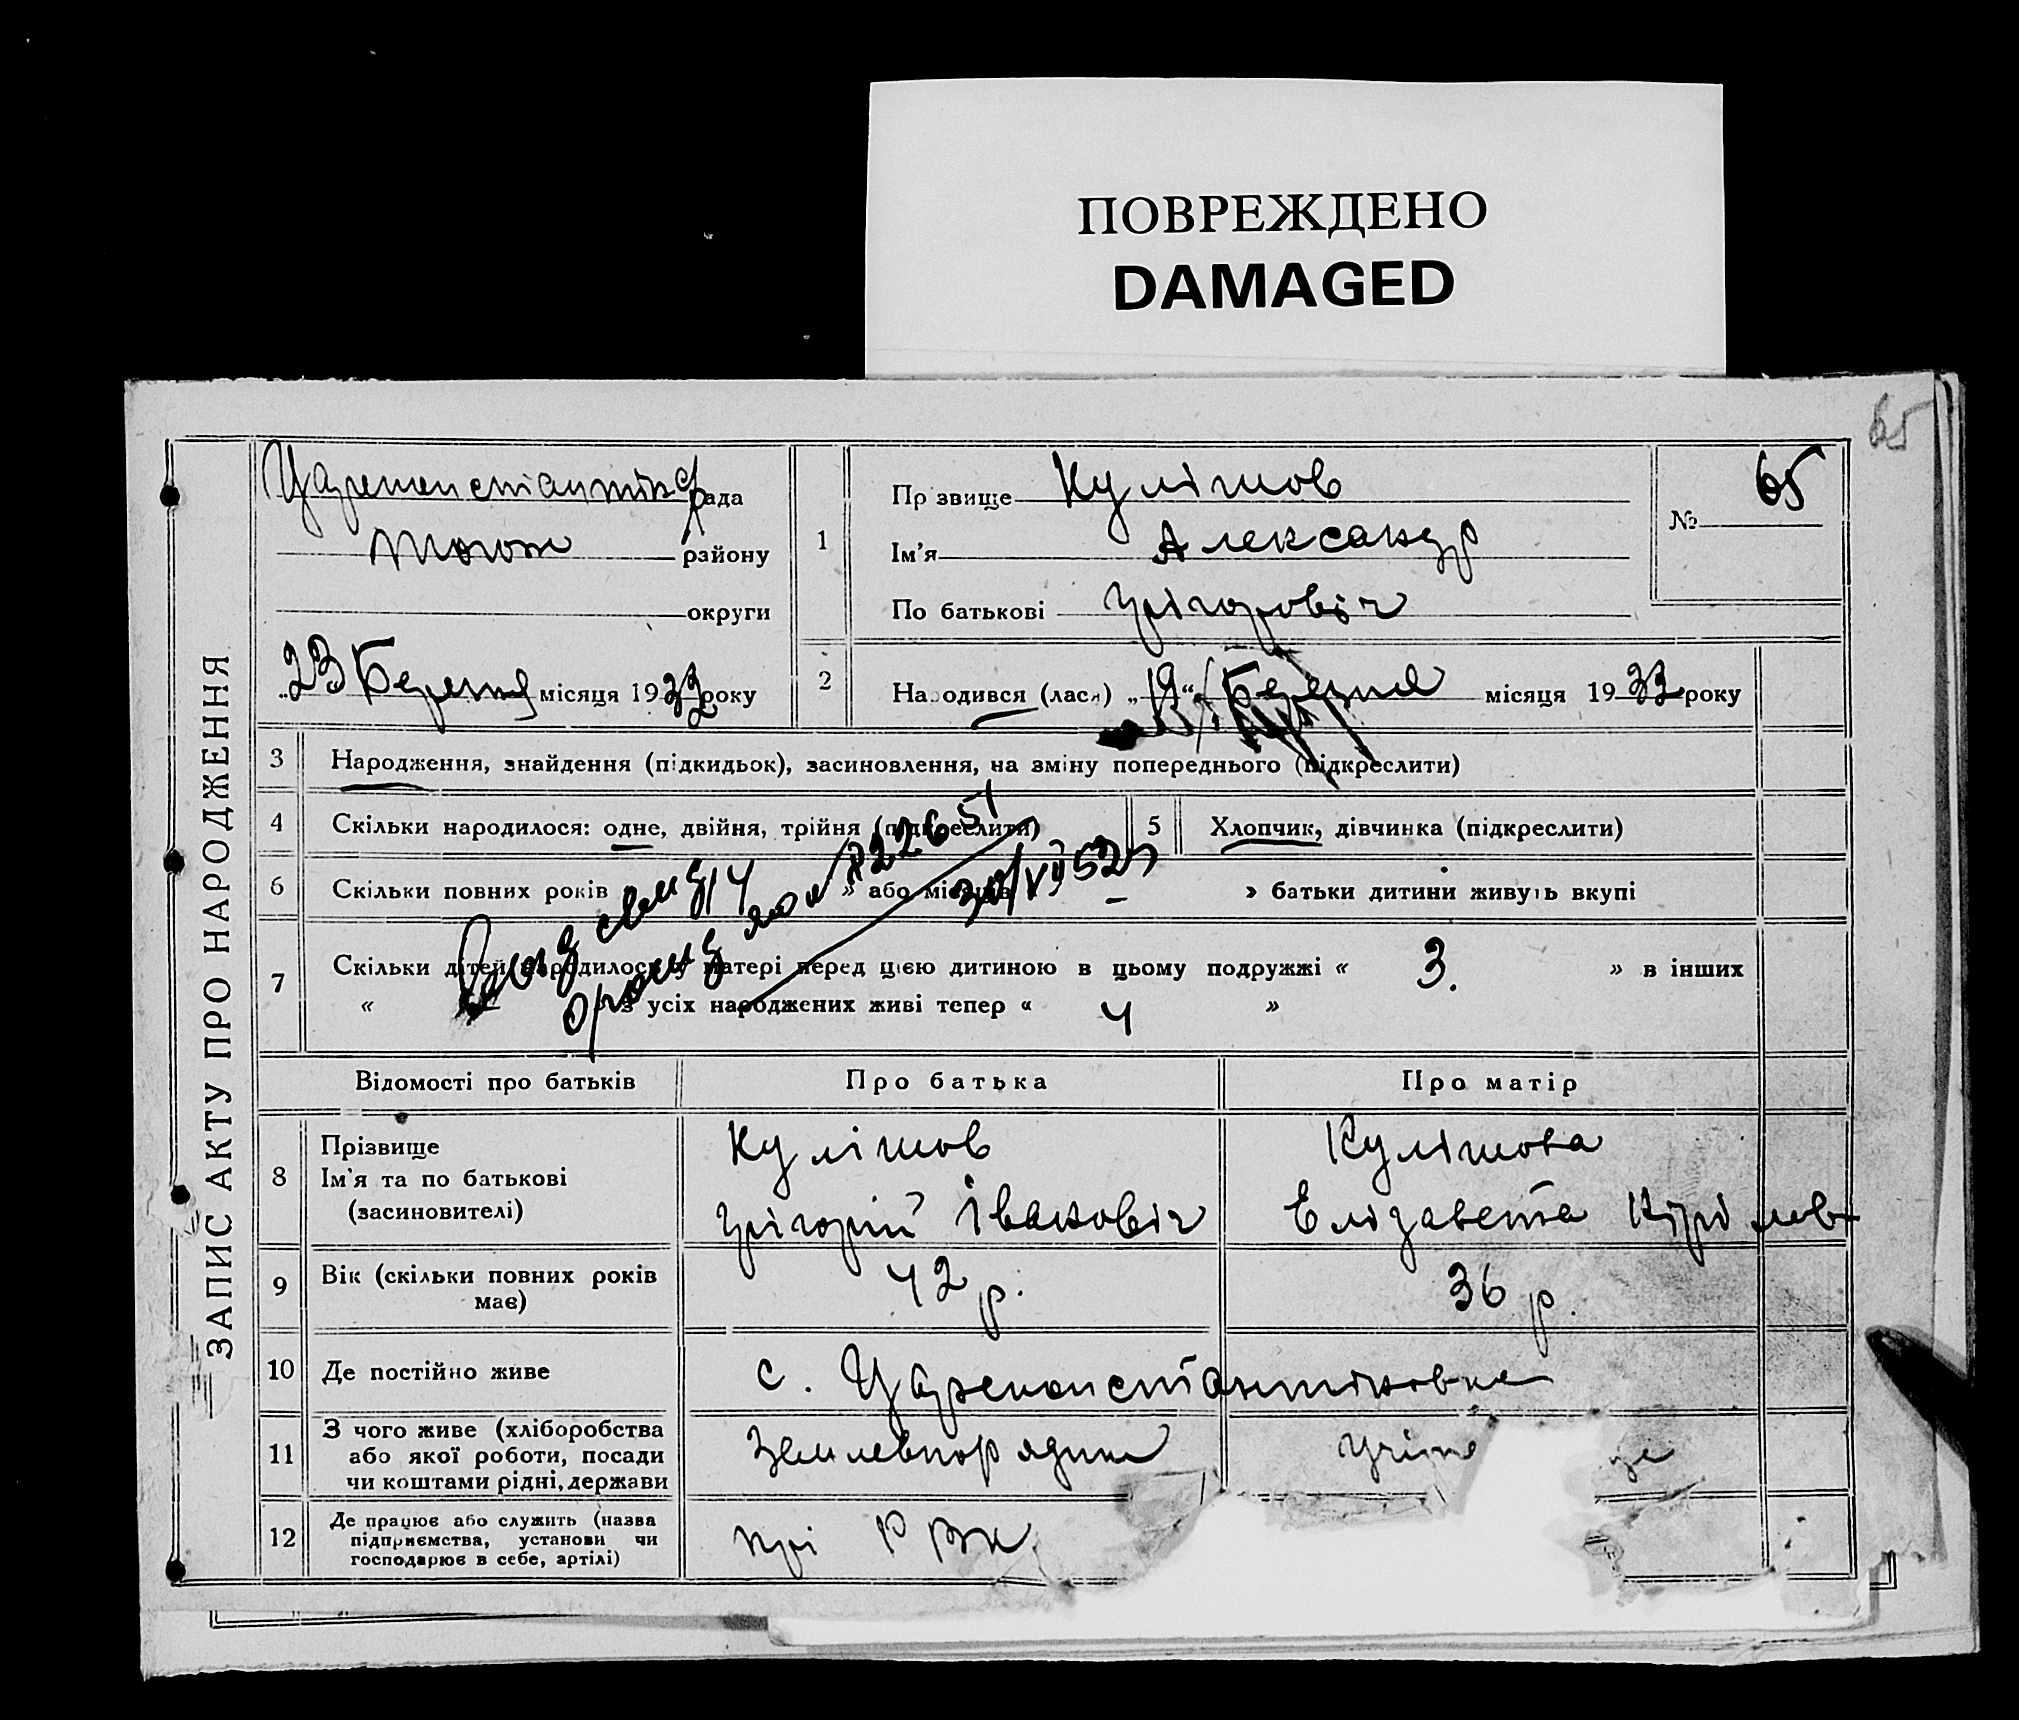 ПОВРЕЖДЕНО
DAMAGED
65
ЗАПИС АКТУ ПРО НАРОДЖЕННЯ
рада
району
округи
23 Березня місяця 1933 року
1
Прізвище Кулішов
Ім'я Александр
По батькові Грігоровіч
№ 65
2
Народився (лася) „19“ Березня місяця 1933 року
3 Народження, знайдення (підкидьок), засиновлення, на зміну попереднього (підкреслити)
4 Скільки народилося: одне, двійня, трійня (підкреслити)
5 Хлопчик, дівчинка (підкреслити)
6 Скільки повних років 14 » або місяців – » батьки дитини живуть вкупі
30/VII 52
7 Скільки дітей народилося у матері перед цією дитиною в цьому подружжі « 3. » в інших
« – » з усіх народжених живі тепер « 4 »
Відомості про батьків Про батька Про матір
8 Прізвище
Ім'я та по батькові
(засиновителі)
Кулішов
Грігорій Івановіч
Кулішова
Елізавета Кірілов
9 Вік (скільки повних років
має)
42 р.
36 р.
10 Де постійно живе
с. Цареконстантіновка
11 З чого живе (хліборобства
або якої роботи, посади
чи коштами рідні, держави
Землевпорядник
12 Де працює або служить (назва
підприємства, установи чи
господарює в себе, артілі)
прі РВК